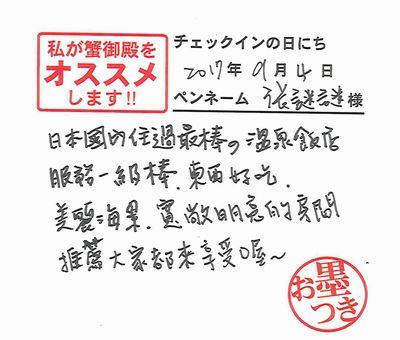 私が蟹御殿を
オススメ
します!!
チェックインの日にち
2017年9月4日
ペンネーム 張謎謎様
日本國內住過最棒の溫泉飯店
服務一級棒．東西好吃．
美麗海景．寬敞明亮的房間
推薦大家都來享受喔～
お墨
つき